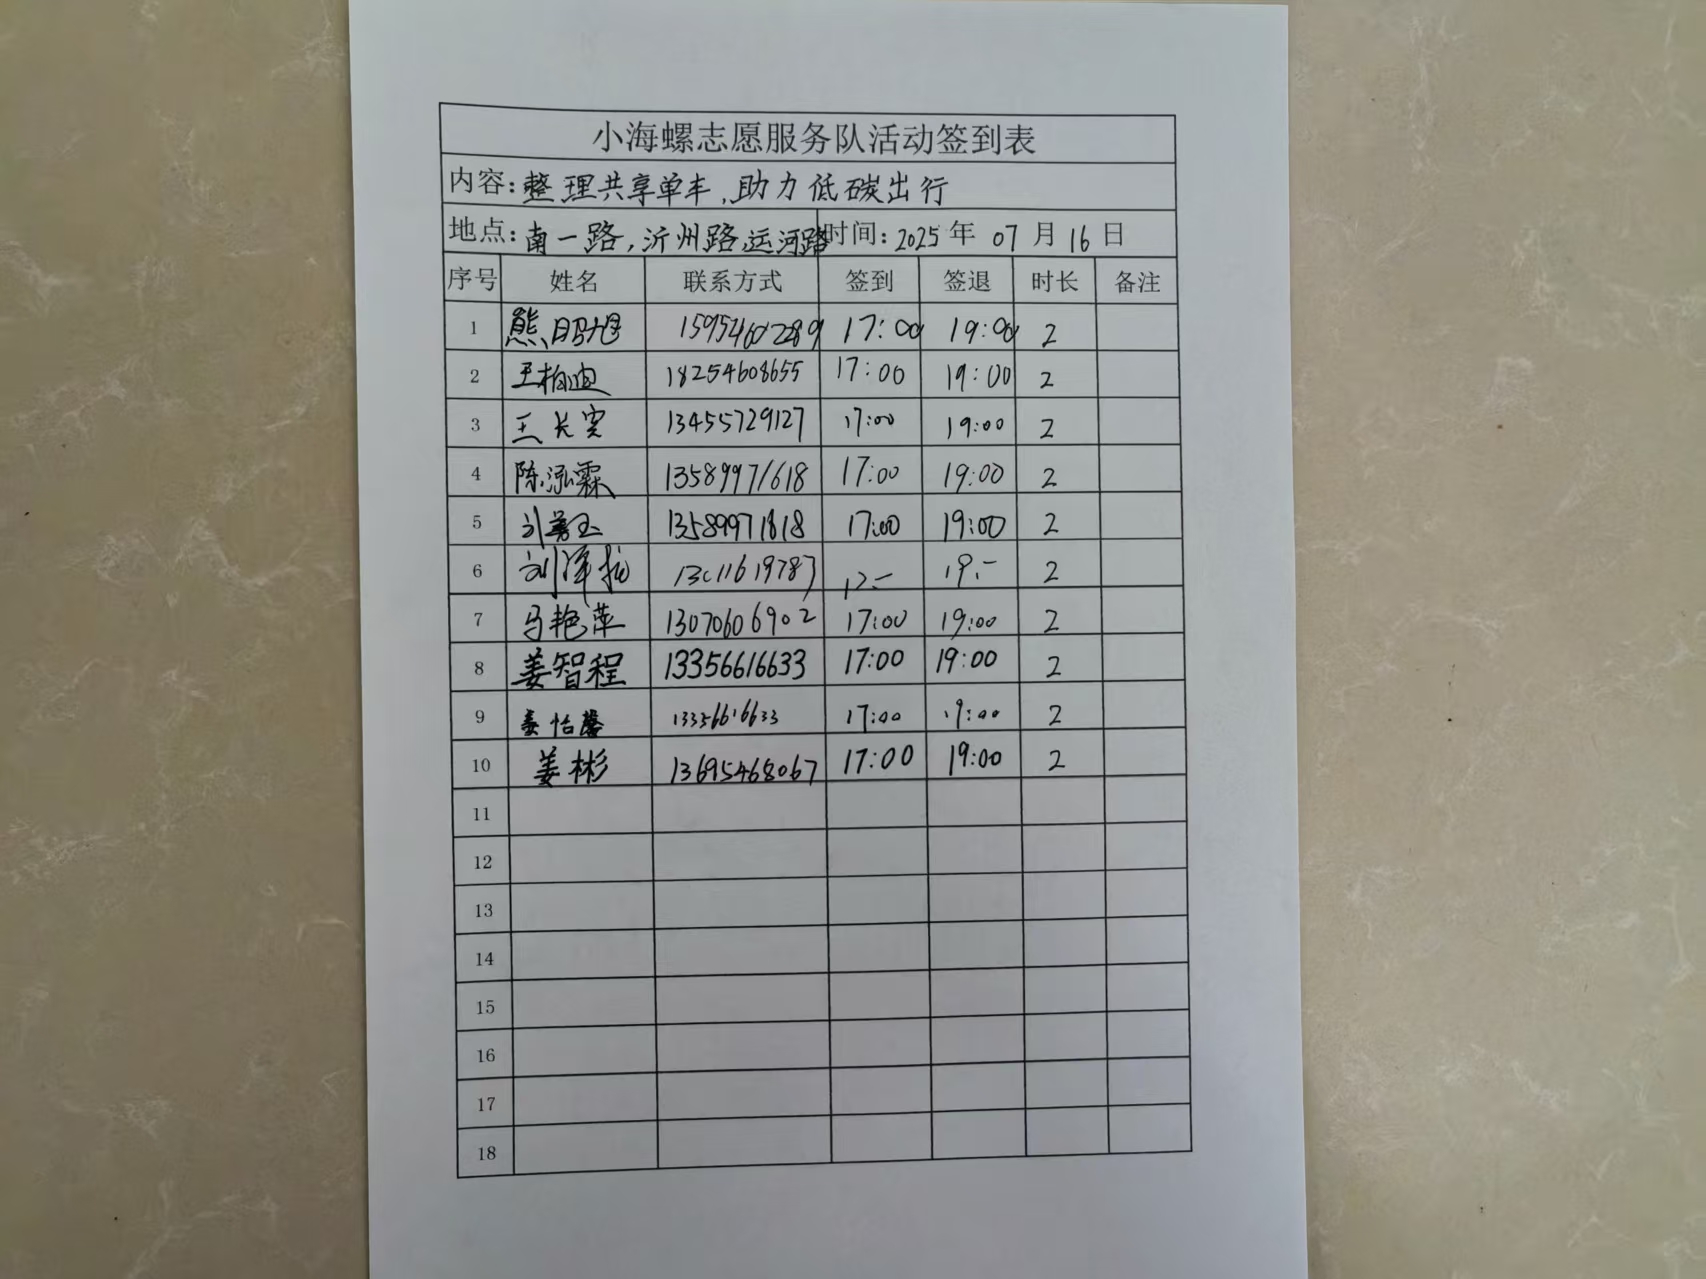 小海螺志愿服务队活动签到表
内容:整理共享单车,助力低碳出行
地点:南一路,沂州路,运河路 时间:2025年07月16日
序号 姓名 联系方式 签到 签退 时长 备注
1 熊昭旭 15954602289 17:00 19:00 2
2 王柏迪 18254608655 17:00 19:00 2
3 王长实 13455729127 17:00 19:00 2
4 陈泓霖 13589971618 17:00 19:00 2
5 刘 13589971818 17:00 19:00 2
6 刘泽 19:- 2
7 马艳萍 13070606902 17:00 19:00 2
8 姜智程 13356616633 17:00 19:00 2
9 姜怡馨 13356616633 17:00 19:00 2
10 姜彬 13695468067 17:00 19:00 2
11
12
13
14
15
16
17
18